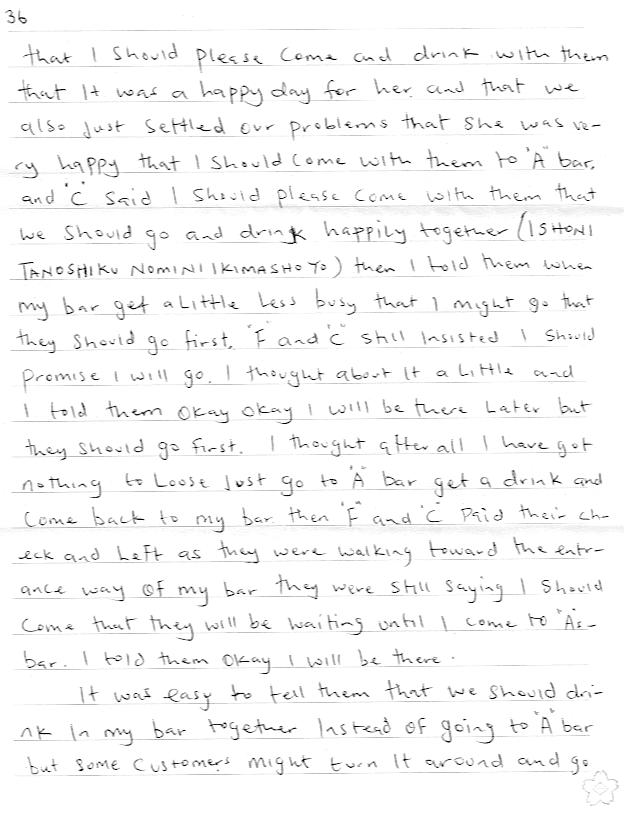 36
that I should please come and drink with them
that It was a happy day for her and that we
also just settled our problems that she was ve-
ry happy that I should come with them to "A" bar,
and "C" said I should please come with them that
we should go and drink happily together (ISHONI
TANOSHIKU NOMINI IKIMASHO YO) then I told them when
my bar get a little less busy that I might go that
they should go first, "F" and "C" still insisted I should
promise I will go. I thought about It a little and
I told them okay okay I will be there Later but
they should go first. I thought after all I have got
nothing to Loose Just go to "A" bar get a drink and
come back to my bar. then "F" and "C" paid their ch-
eck and Left as they were walking toward the entr-
ance way of my bar they were still saying I should
come that they will be waiting until I come to "A"s-
bar. I told them okay I will be there.
It was easy to tell them that we should dri-
nk In my bar together Instead of going to "A" bar
but some customers might turn It around and go